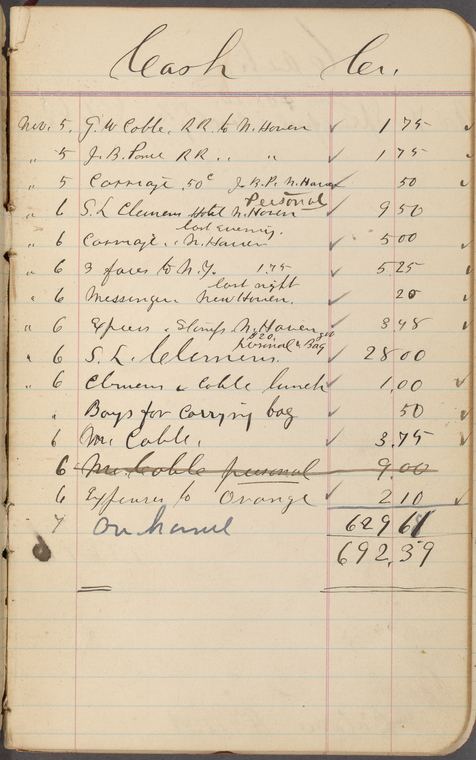 Cash Cr.
Nov. 5. G. W Cable. RR. to N. Haven ✓ 1 75 ✓
" 5 J. B. Pond RR .. " ✓ 1 75 ✓
5 Carriage 50c J. B. P. N. Haven ✓ 50 ✓
Personal
" 6 S. L Clemens Hotel N. Haven ✓ 9 50
last evening.
" 6 Carriage. " N. Haven ✓ 5 00
" 6 3 fares to N. Y. 1.75 ✓ 5 25
last night
" 6 Messenger New Haven. ✓ 20
" 6 Express & Stamps N. Haven ✓ 3,48
$20, personal & Bag
" 6 S. L. Clemens. ✓ 28 00
" 6 Clemens & Cable lunch ✓ 1,00 ✓
" Boys for carrying bag ✓ 50 ✓
6 Mr. Cable. ✓ 3.75 ✓
6 Mr. Cable personal 9.00
6 Expenses to Orange ✓ 2 10 ✓
7 On hand 629 61
692.39